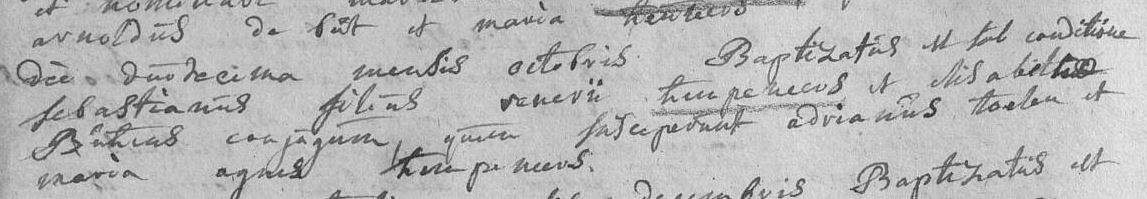 et nominari
arnoldus de but et maria henvens
die duodecima mensis octobris Baptizatus est sub conditione
sebastianus filius renerii henpeneers et elisabetha
Buhens conjugum, quem susceperunt adrianus toelen et
maria agnes henpeneers.
decembris Baptizatus est